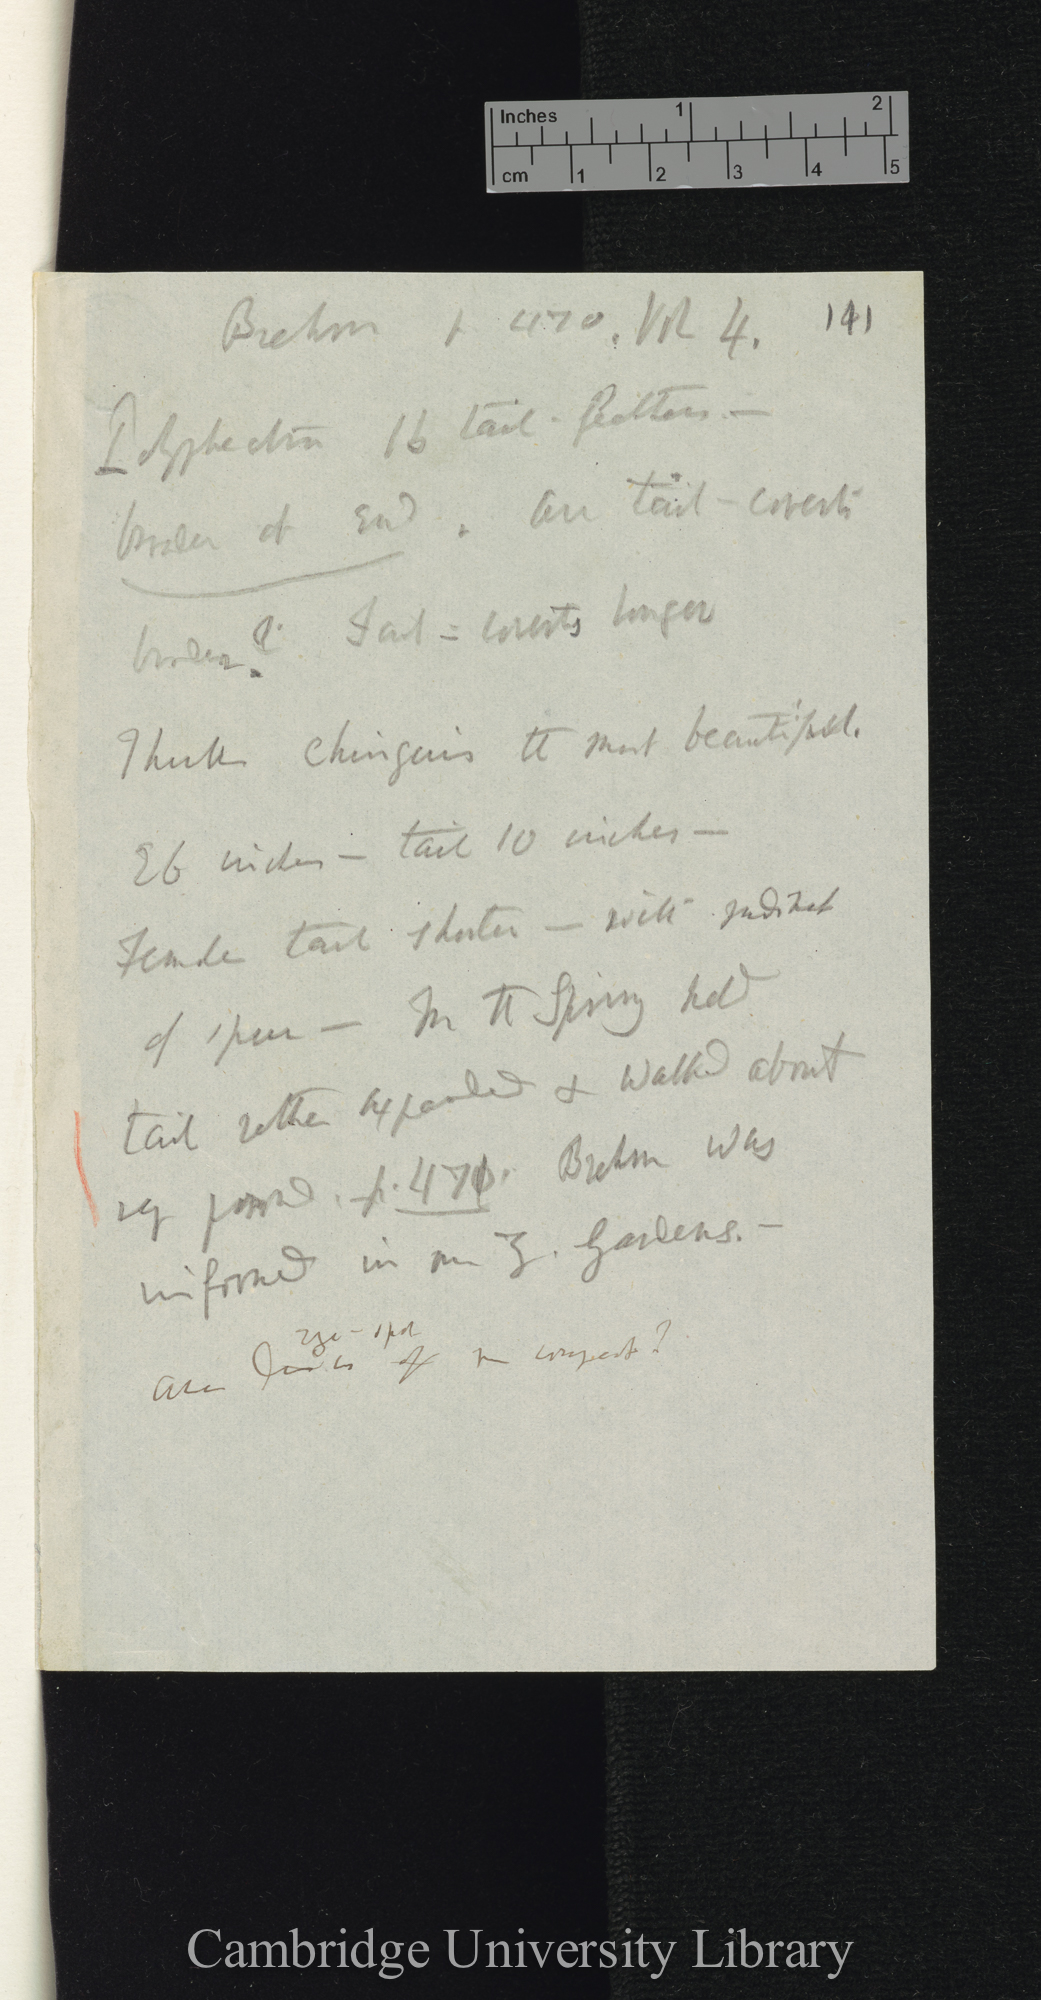 Inches 1 2
cm 1 2 3 4 5
Brehm p 470. Vol 4. 141
Polyplectron 16 tail-feathers —
broader at end. Are tail-coverts
broader? Tail-coverts longer
Thinks Chinquis the most beautiful.
26 inches — tail 10 inches —
Female tail shorter — with rudiment
of spur — In the Spring held
tail rather expanded & walked about
very proud. p. 471. Brehm was
informed in our Z. Gardens. —
eye-spot
Are of the
Cambridge University Library